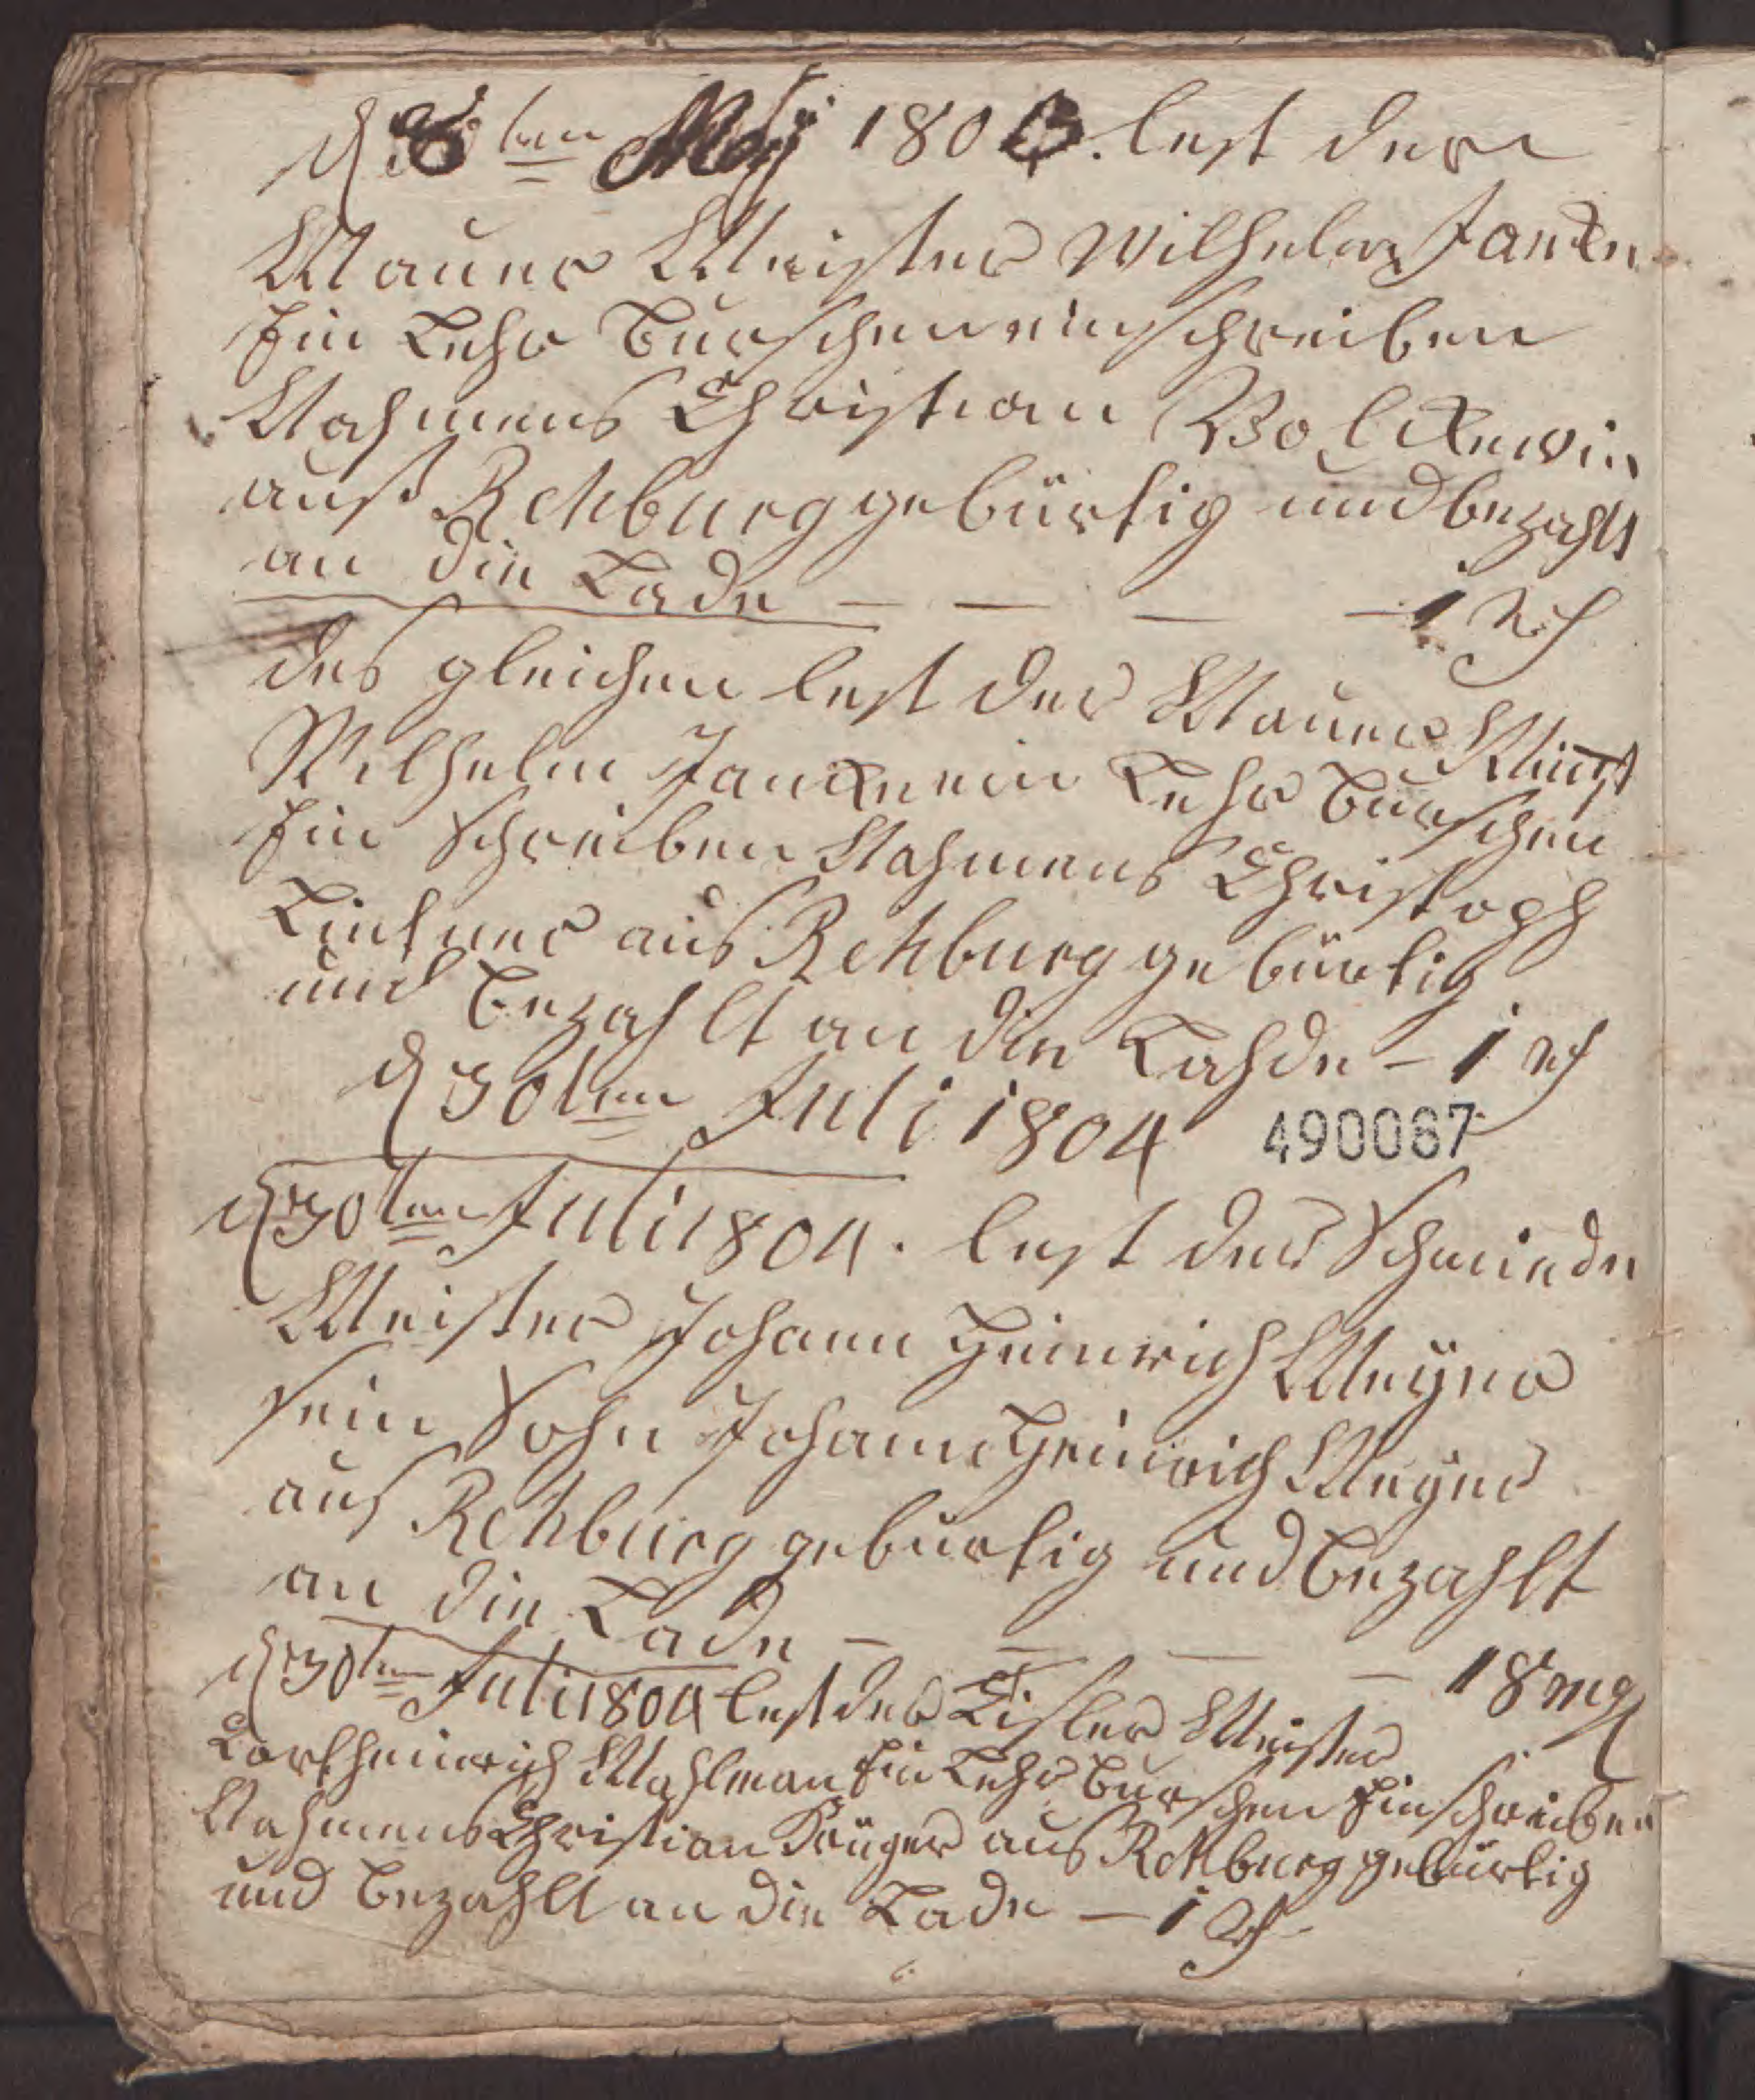 d 8ten Mey 1803. lest der
Mauer Meister Wilhelm Janken
Ein Lehr Burschen einschreiben
Nahmens Christian Boltkewin
auß Rehburg gebürtig und bezahlt
an die Lade — — — — 1 rth
des gleichen lest der Mauer Meist
Wilhelm Janken ein Lehr Burschen
Ein Schreiben Nahmens Christoph
Lintner aus Rehburg gebürtig
und bezahlt an die Lahde – 1 rth
d 30ten Juli 1804
490067
d 30ten Juli 1804. lest der Schmiede
Meister Johann Heinrich Meyer
sein Sohn Johann Heinrich Meyer
aus Rehburg gebürtig und bezahlt
an die Lade – – – – 18 mg
d 30ten Juli 1804 lest der Tisler Meister
Cort heinrich Mahlman Ein Lehr Burschen Einschreiben
Nahmens Christian Krüger aus Rehburg gebürtig
und bezahlt an die Lade – 1 rth